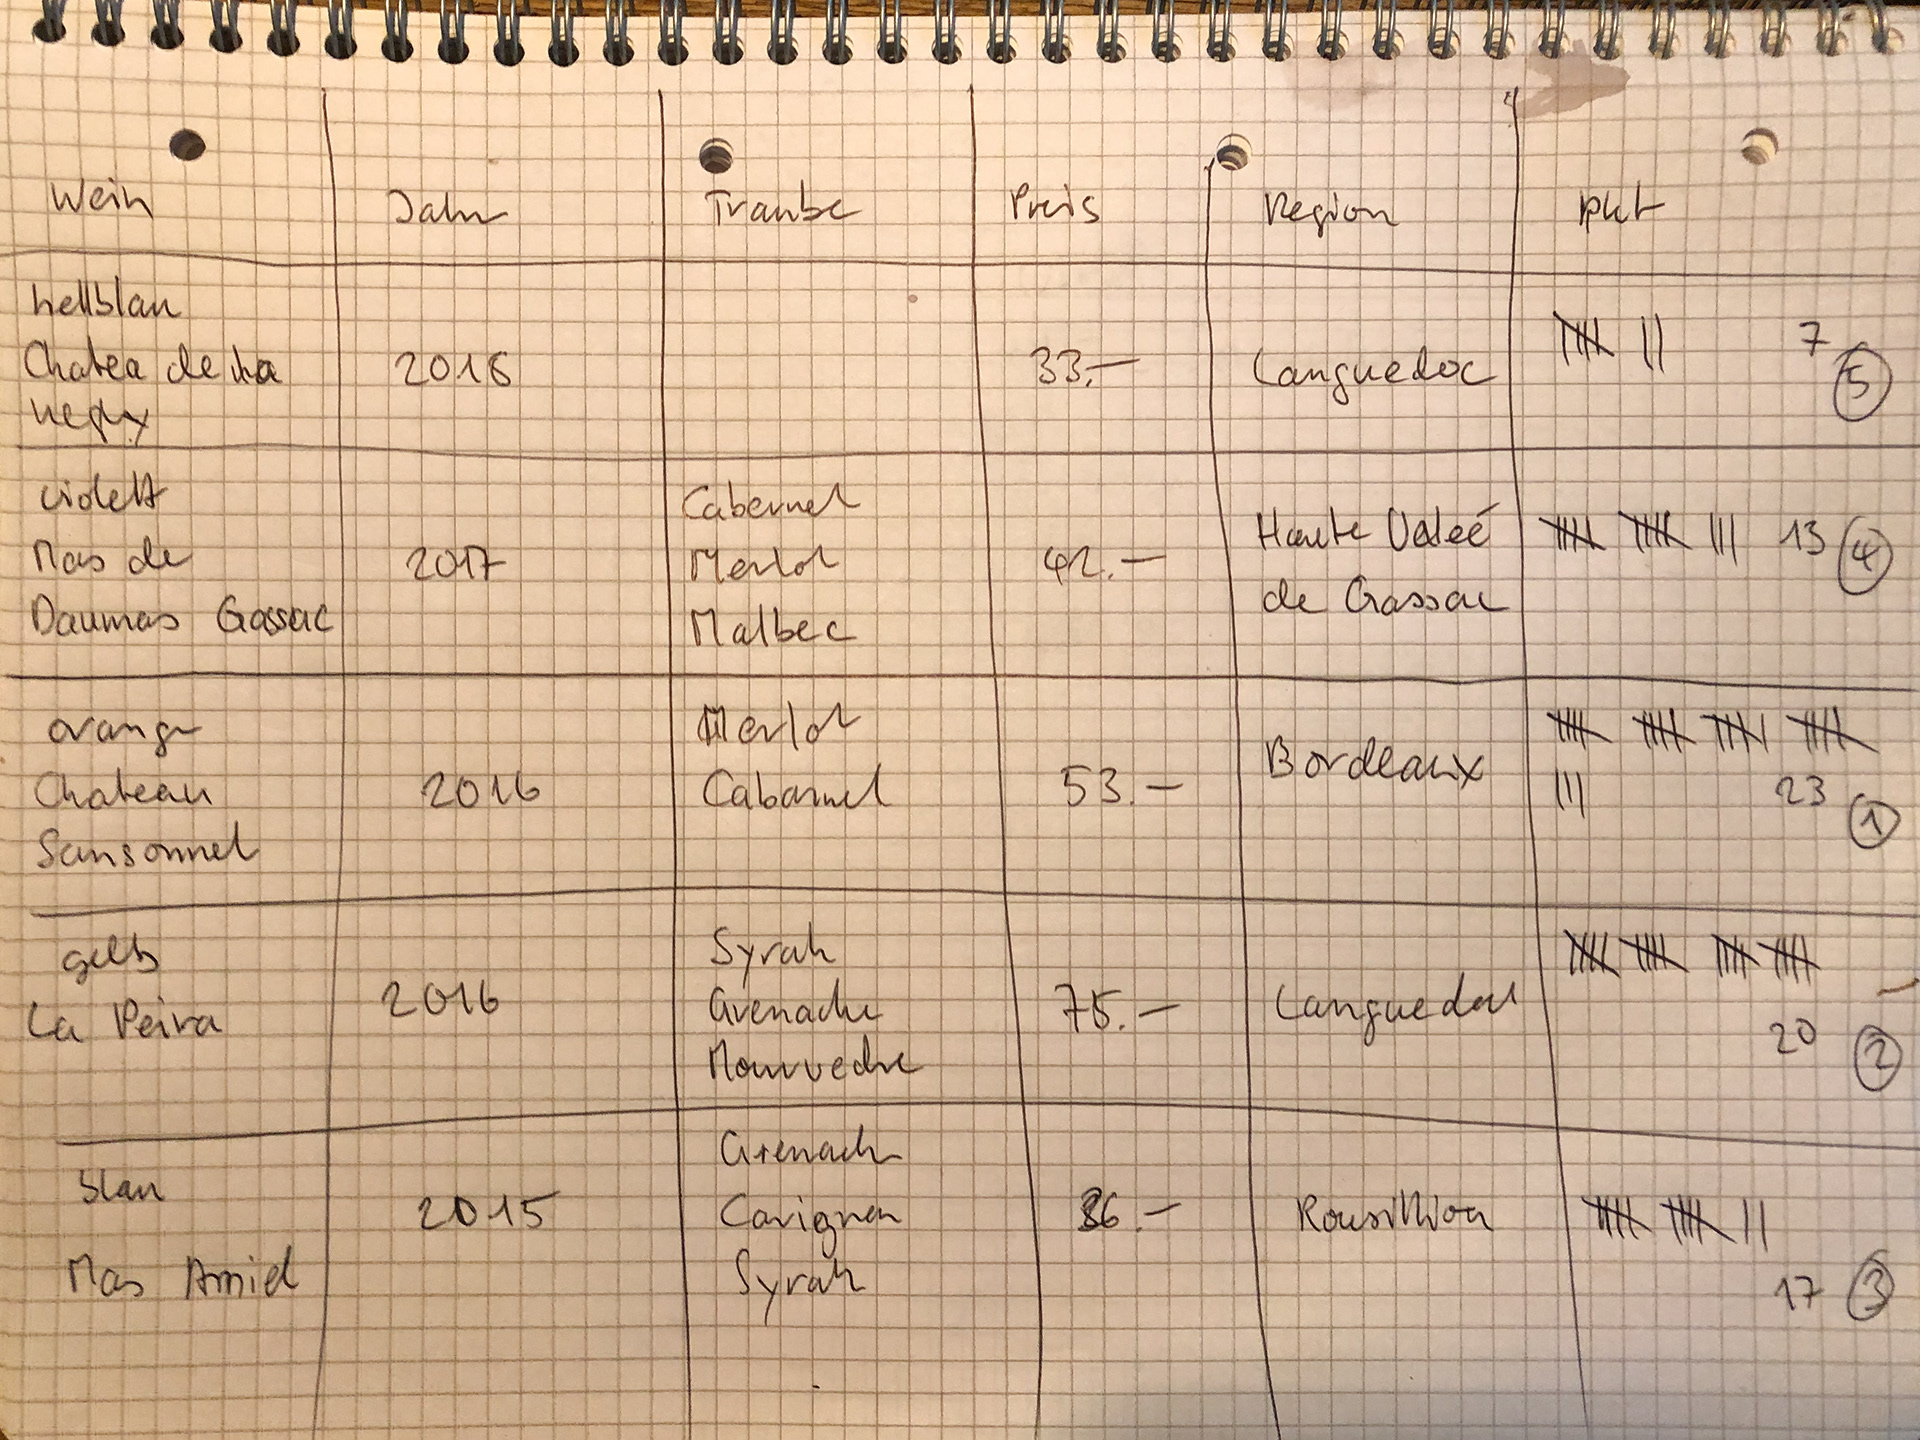 Wein Jahr Traube Preis Region Pkt
hellblau
Chatea de la 2016 33.- Languedoc 7
5
violett Cabernet
Mas de 2017 Merlot 42.- Haute Valeé 13 4
Daumas Gassac Malbec de Gassac
orange Merlot
Chateau 2016 Cabarnet 53.- Bordeaux 23
Sansonnet 1
gelb Syrah
La Peira 2016 Grenache 75.- Languedoc 20
Mourvedre 2
Grenach
blau 2015 Carignan 36.- Rousillion
Mas Amiel Syrah 17 3